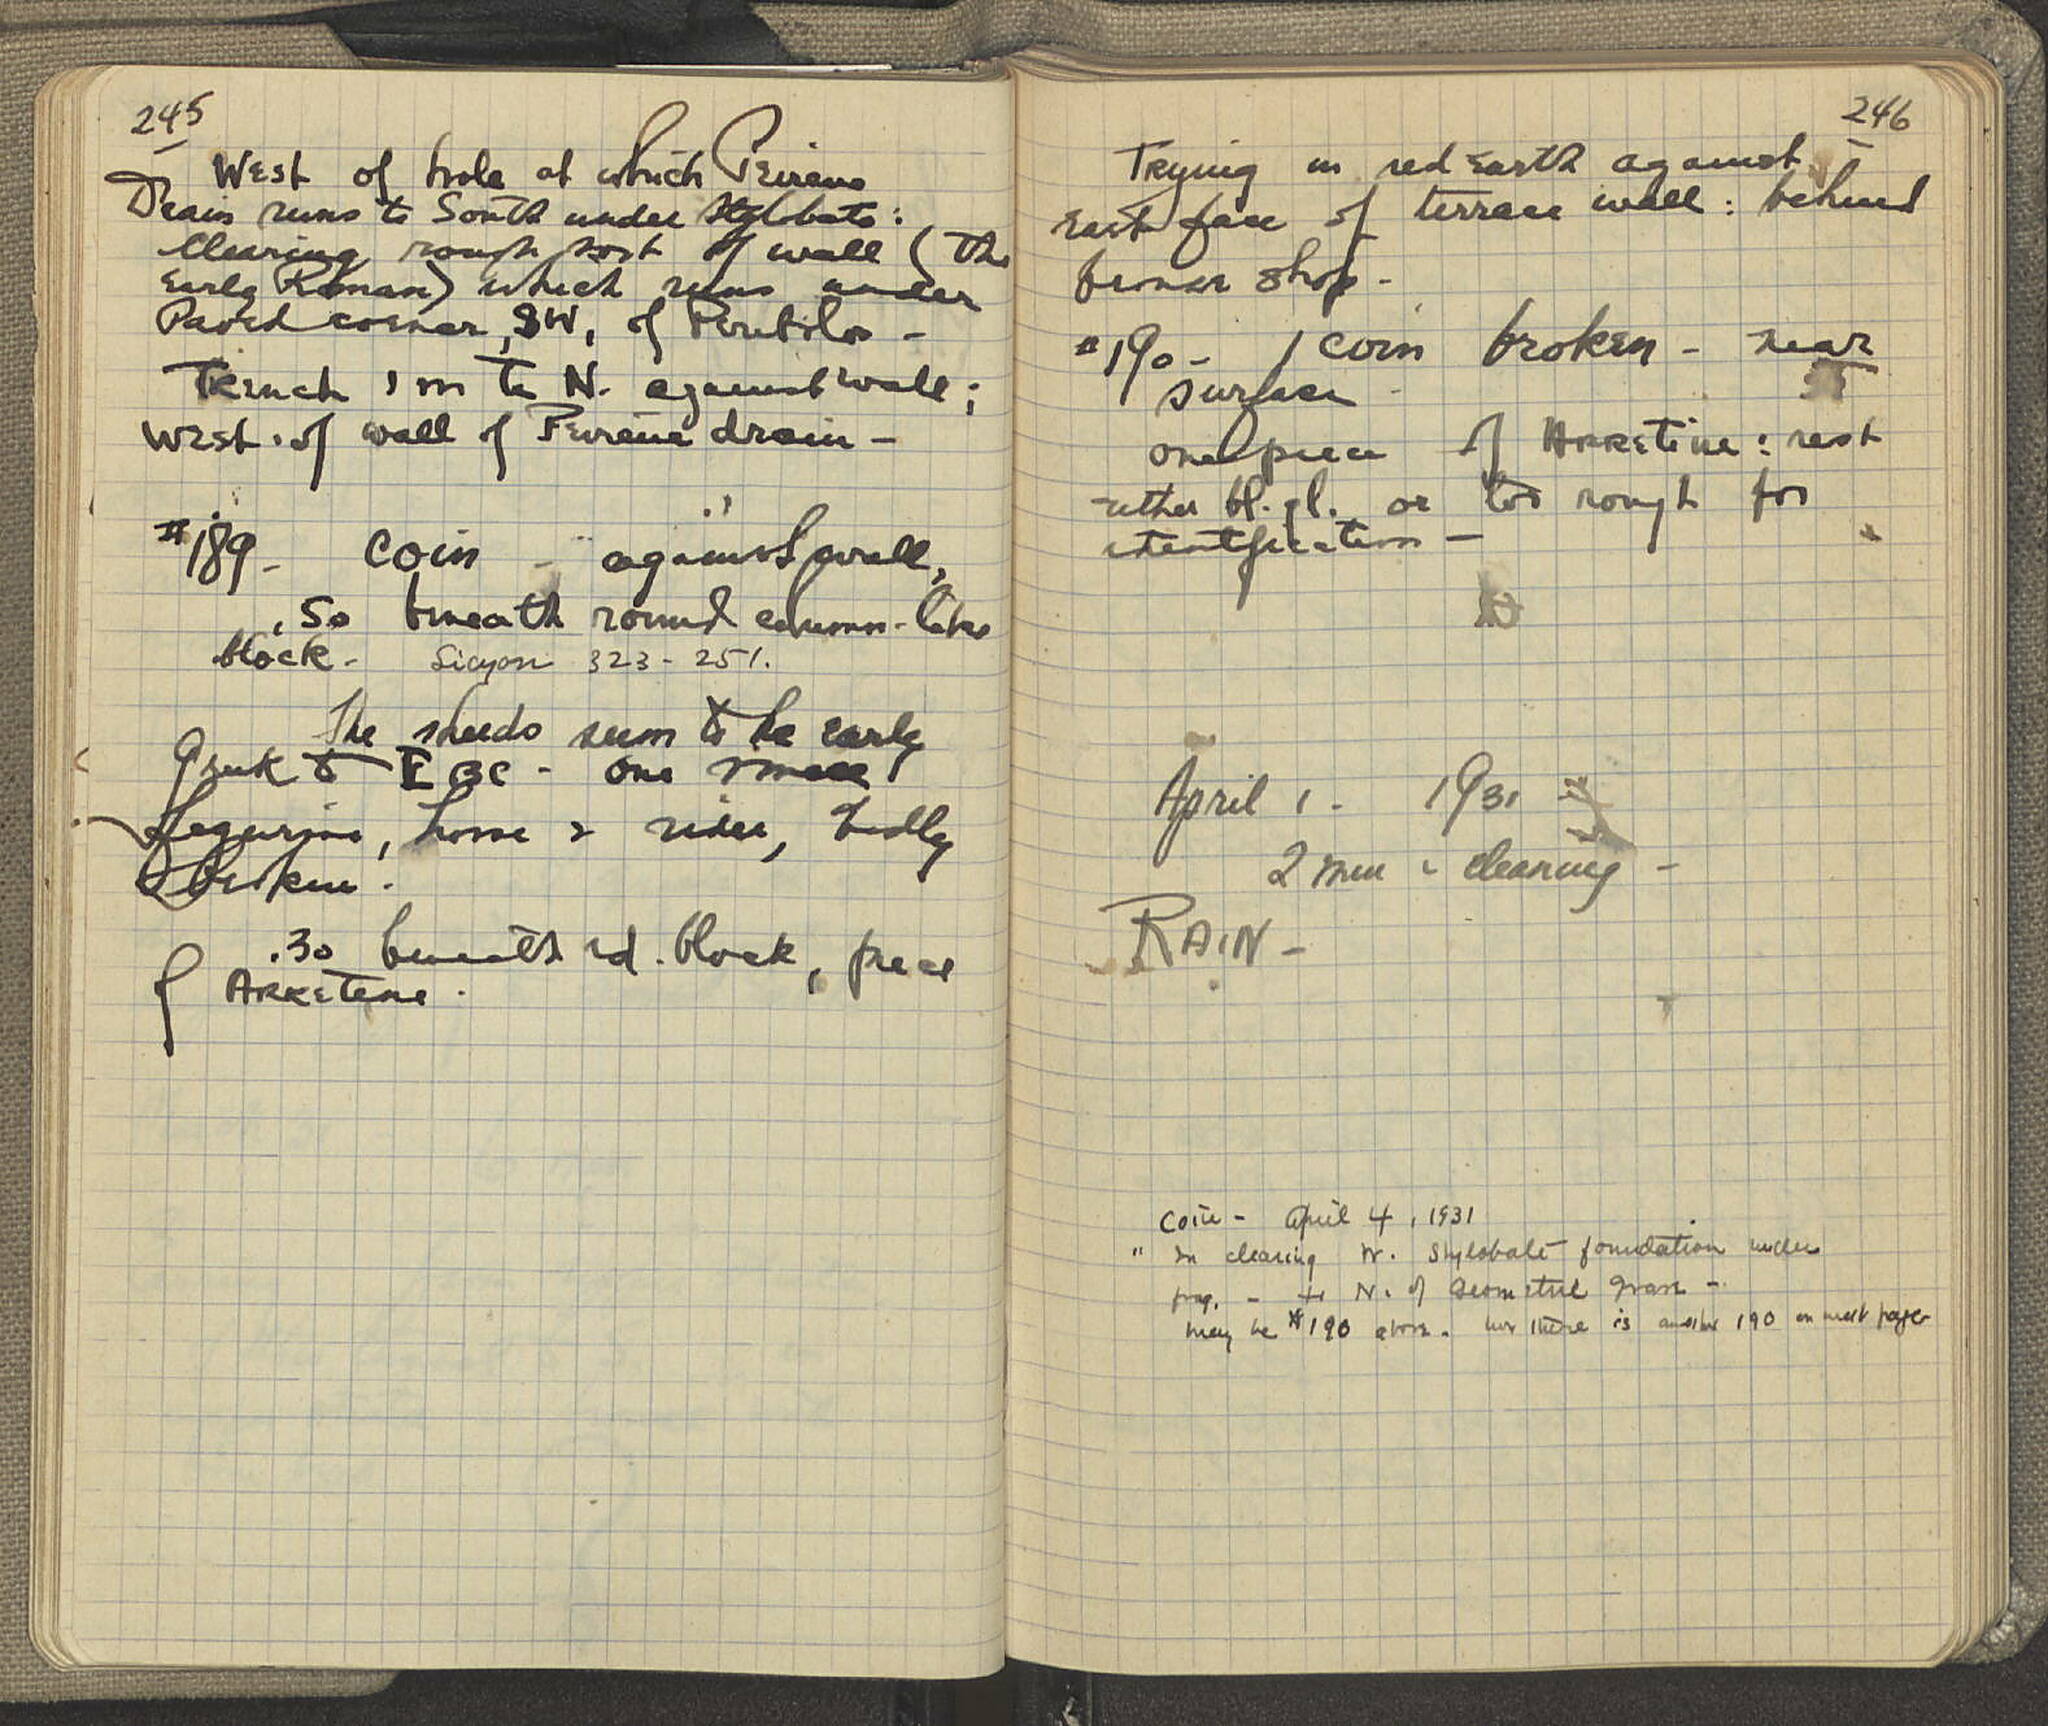 245
West of hole at which Peirene
Drain runs to South under stylobate:
Clearing rough sort of wall (the
Early Roman) which runs under
Paved corner, SW, of Peribolos -
Trench 1 m to N. against wall;
west of wall of Peirene drain -
#189 - coin - against wall,
.50 beneath round column-like
block - Sicyon 323-251.
The sherds seem to be early
Greek to I BC - one small
fegurine, horse & rider, badly
broken.
.30 beneath rd. block, piece
of Arretine.
246
Trying in red earth against
East face of terrace wall: behind
bronze shop -
#190 - 1 coin broken - near
surface
one piece of Arretine: rest
either bl. gl. or too rough for
identification -
April 1 - 1931
2 men - clearing -
RAIN -
Coin - April 4, 1931
" In clearing W. Stylobate foundation under
prop. - to N. of Geometric Grave -
may be #190 above. but there is another 190 on next page